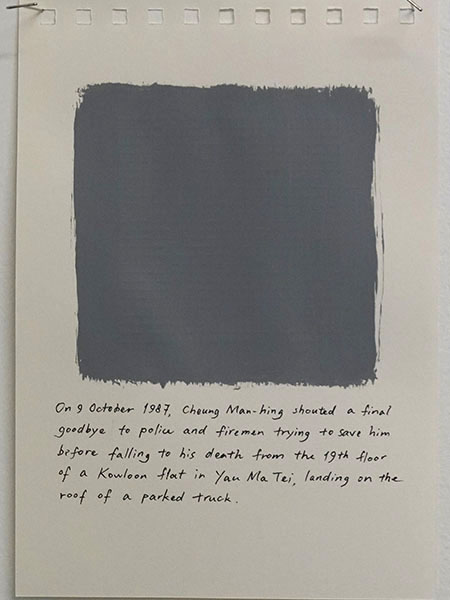 On 9 October 1987, Cheung Man-hing shouted a final
goodbye to police and firemen trying to save him
before falling to his death from the 19th floor
of a Kowloon flat in Yau Ma Tei, landing on the
roof of a parked truck.